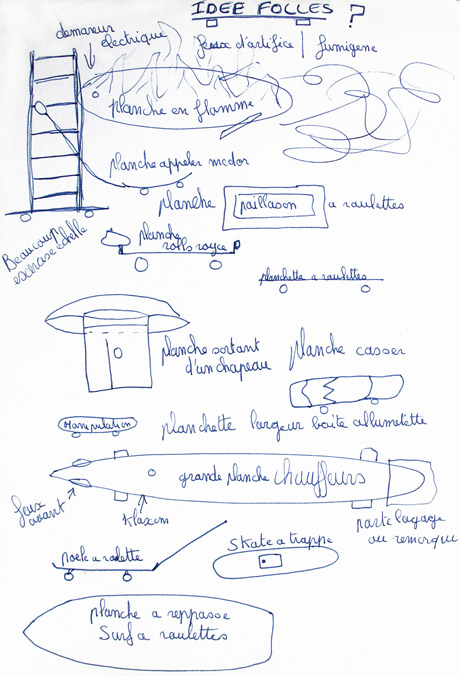 IDEE FOLLES ?
demareur
electrique
feux d'artifice | fumigene
planche en flamme
planche appeler medor
planche paillason a roulettes
Beaucoup
exercise echelle
planche
rolls royce
planchette a roulettes
planche sortant
d'un chapeau
planche casser
Manipulation
planchette largeur boite allumettette
grande planche chauffeurs
feux
avant
Klaxon
porte bagage
ou remorque
poele a roulette
Skate a trappe
planche a reppasse
Surf a roulettes